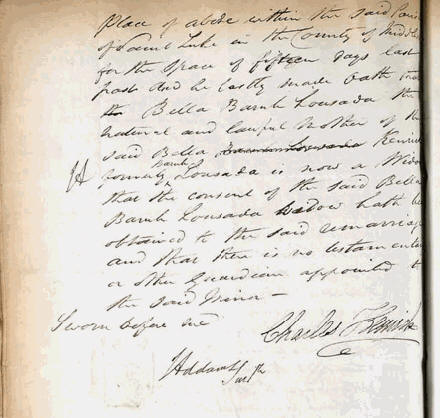 place of abode within the said Paris
of Saint Luke in the County of Middle
for the space of fifteen days last
past And he lastly made Oath that
Bella Baruh Lousada the
natural and lawful Mother of the
said Bella Baruh Lousada Kenrick
formerly Baruh Lousada is now a Widow
that the consent of the said Bella
Baruh Lousada Widow hath be
obtained to the said remarriage
and that there is no testamentar
or other Guardian appointed to
the said Minor
Sworn before me
Charles Kenrick